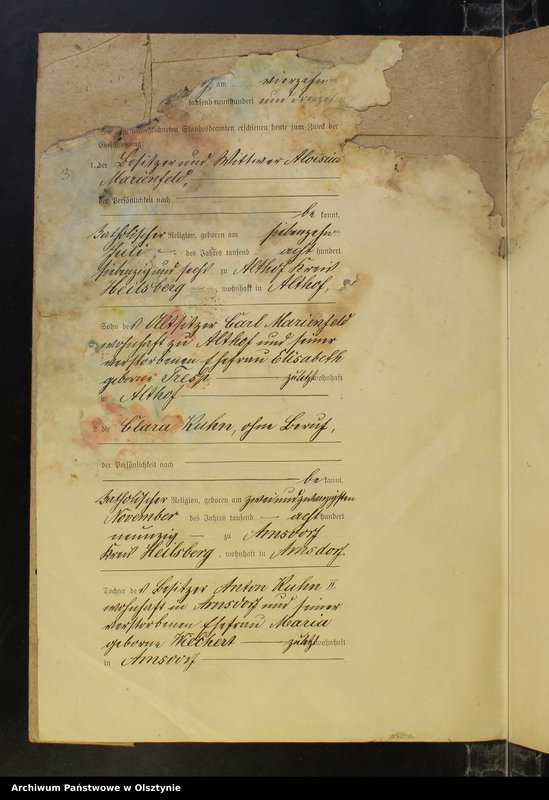 am vierzehn ten
tausend neunhundert und dreizehn
unterzeichneten Standesbeamten erschienen heute zum Zweck der
Eheschließung:
3
1. der Besitzer und Wittwer Aloisius
Marienfeld,
der Persönlichkeit nach
be kannt,
katholischer Religion, geboren am siebenzehn ten
Juli des Jahres tausend acht hundert
siebenzig und sechs zu Althof Kreis
Heilsberg, wohnhaft in Althof,
Sohn des Altsitzer Carl Marienfeld
wohnhaft zu Althof und seiner
verstorbenen Ehefrau Elisabeth
geborne Tresp, zuletzt wohnhaft
in Althof
2. die Clara Kuhn, ohne Beruf,
der Persönlichkeit nach
be kannt,
katholischer Religion, geboren am zweiundzwanzigsten
November des Jahres tausend acht hundert
neunzig zu Arnsdorf
Kreis Heilsberg, wohnhaft in Arnsdorf.
Tochter des Besitzer Anton Kuhn II
wohnhaft in Arnsdorf und seiner
verstorbenen Ehefrau Maria
geborne Weichert zuletzt wohnhaft
in Arnsdorf
Archiwum Państwowe w Olsztynie